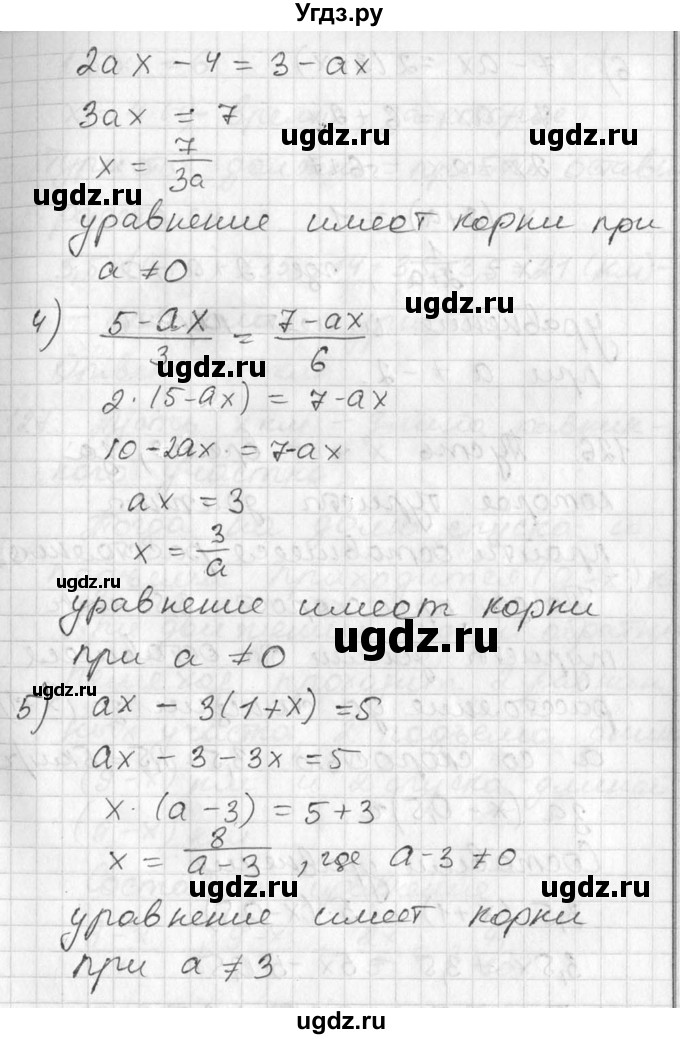 Угдз.ру
2ax - 4 = 3 - ax
3ax = 7
x = 7/3a
уравнение имеет корни при
a ≠ 0
4) 5-ax/3 = 7-ax/6
2·(5-ax) = 7-ax
10-2ax = 7-ax
ax = 3
x = 3/a
уравнение имеет корни
при a ≠ 0
5) ax - 3(1+x) = 5
ax - 3 - 3x = 5
x·(a-3) = 5+3
x = 8/a-3, где a-3 ≠ 0
уравнение имеет корни
при a ≠ 3
ugdz.ru
ugdz.ru
ugdz.ru
ugdz.ru
ugdz.ru
ugdz.ru
ugdz.ru
ugdz.ru
ugdz.ru
ugdz.ru
ugdz.ru
ugdz.ru
ugdz.ru